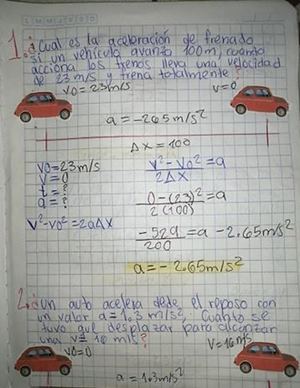 1. ¿Cual es la aceleración de frenado
si un vehículo avanza 100m, cuando
acciona los frenos lleva una velocidad
de 23 m/s y frena totalmente?
v0 = 23m/s
v=0
a = -265 m/s²
Δx = 100
v0=23m/s
v=0
t=?
a=?
v²-v0²=2aΔx
v²-v0²/2Δx = a
0-(23)²/2(100) = a
-529/200 = a -2.65m/s²
a = -2.65m/s²
2. ¿un auto acelera desde el reposo con
un valor a= 1.3 m/s², Cuanto se
tuvo que desplazar para alcanzar
una v= 18 m/s?
v0=0
a = 1.3m/s²